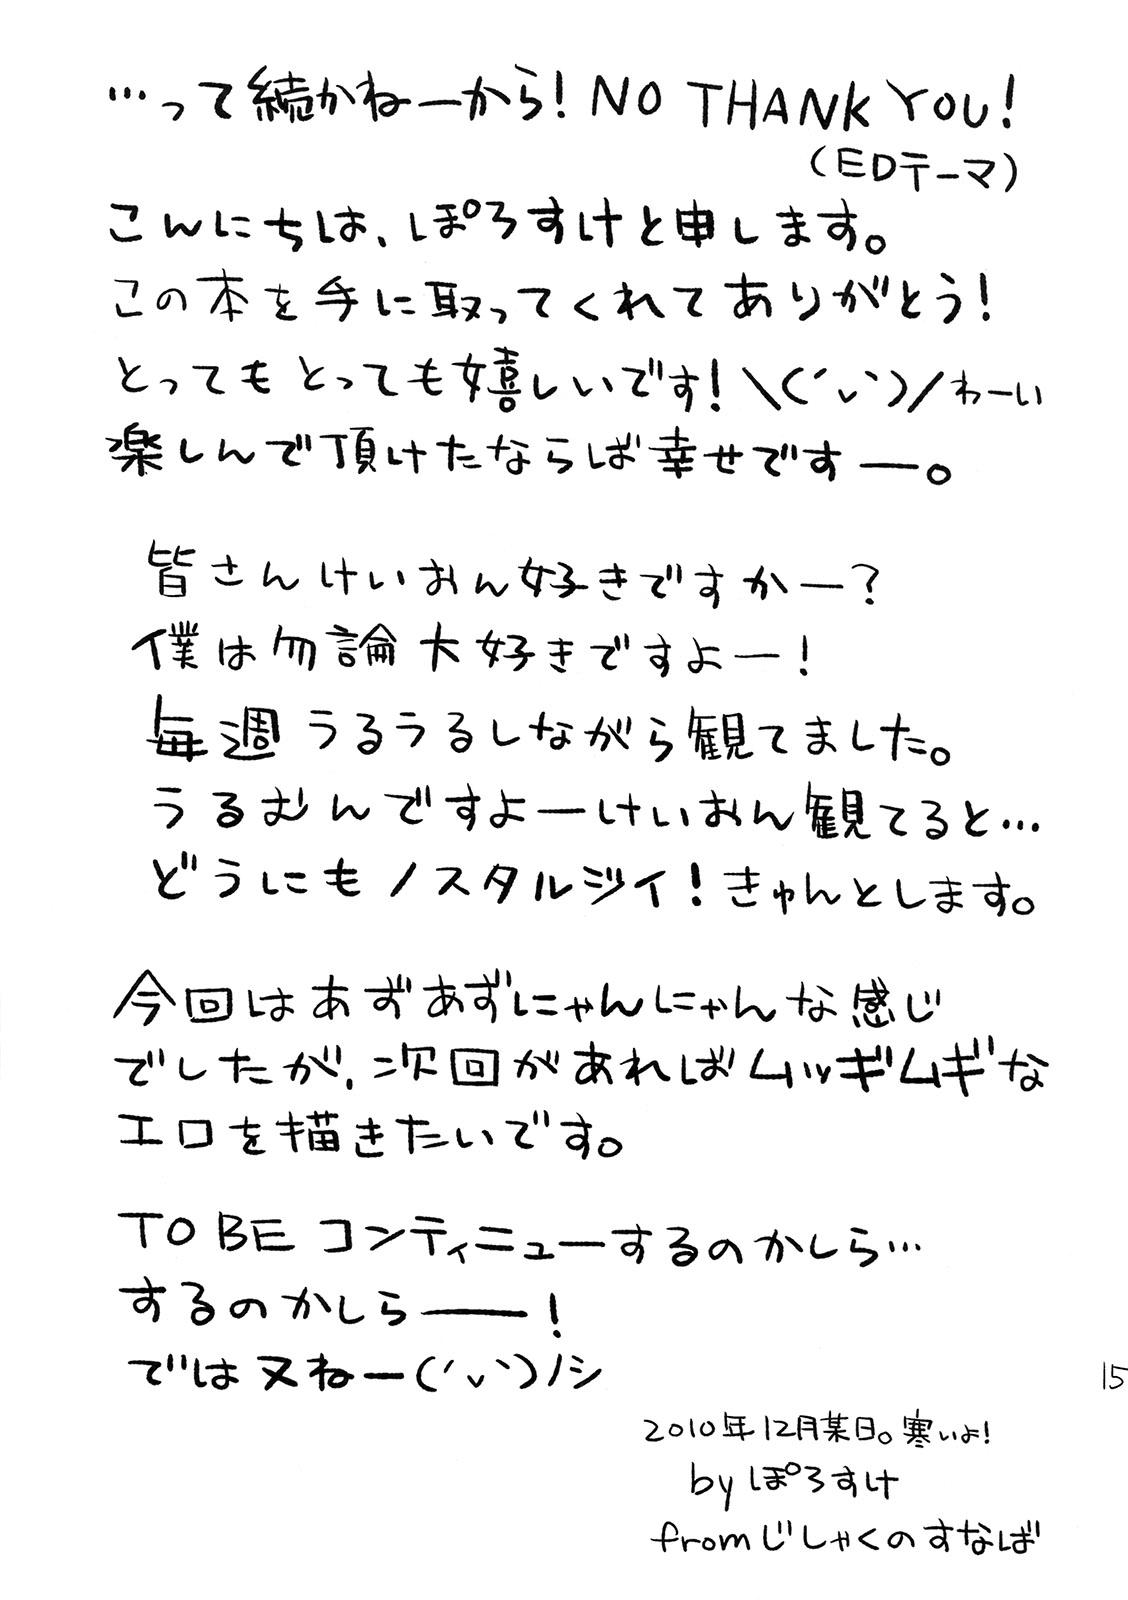 …って続かねーから！NO THANK YOU！
（EDテーマ）
こんにちは、ぽろすけと申します。
この本を手に取ってくれてありがとう！
とってもとっても嬉しいです！＼(´ヮ`)／わーい
楽しんで頂けたならば幸せですー。
皆さんけいおん好きですかー？
僕は勿論大好きですよー！
毎週うるうるしながら観てました。
うるむんですよーけいおん観てると…
どうにもノスタルジイ！きゅんとします。
今回はあずあずにゃんにゃんな感じ
でしたが、次回があればムッギムギな
エロを描きたいです。
TO BE コンティニューするのかしら…
するのかしら――！
では又ねー(´ヮ`)ノシ
15
2010年12月某日。寒いよ！
by ぽろすけ
fromじしゃくのすなば